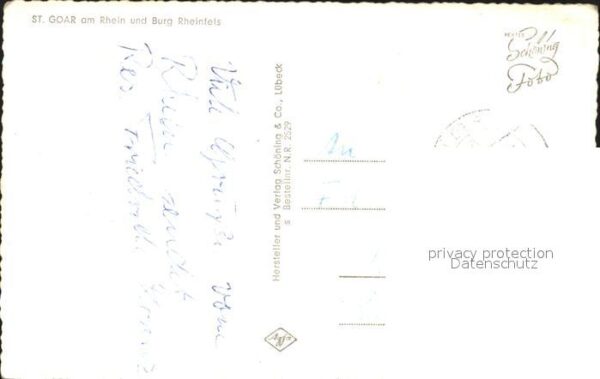 ST. GOAR am Rhein und Burg Rheinfels
Schöning
Foto
Viele Grüße vom
Rhein sendet
Hersteller und Verlag Schöning & Co., Lübeck
s Bestellnr. N.R. 2529
An
F
Agfa
privacy protection
Datenschutz